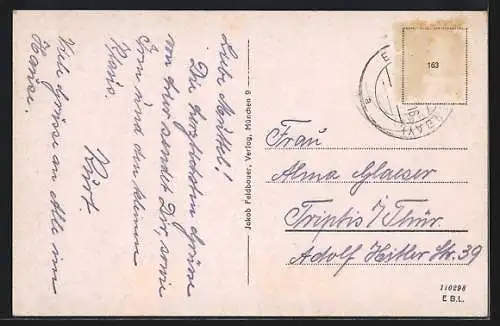 Liebe Muttel!
Die herzlichsten Grüsse
von hier sendet Dir, sowie
Irm und den kleinen
Kurt.
Viele Grüsse an Alle im
Hause.
Jakob Feldbauer, Verlag, München 9
163
Frau
Alma Glaeser
Triptis / Thür.
Adolf Hitler Str. 39
110298
E.B.L.